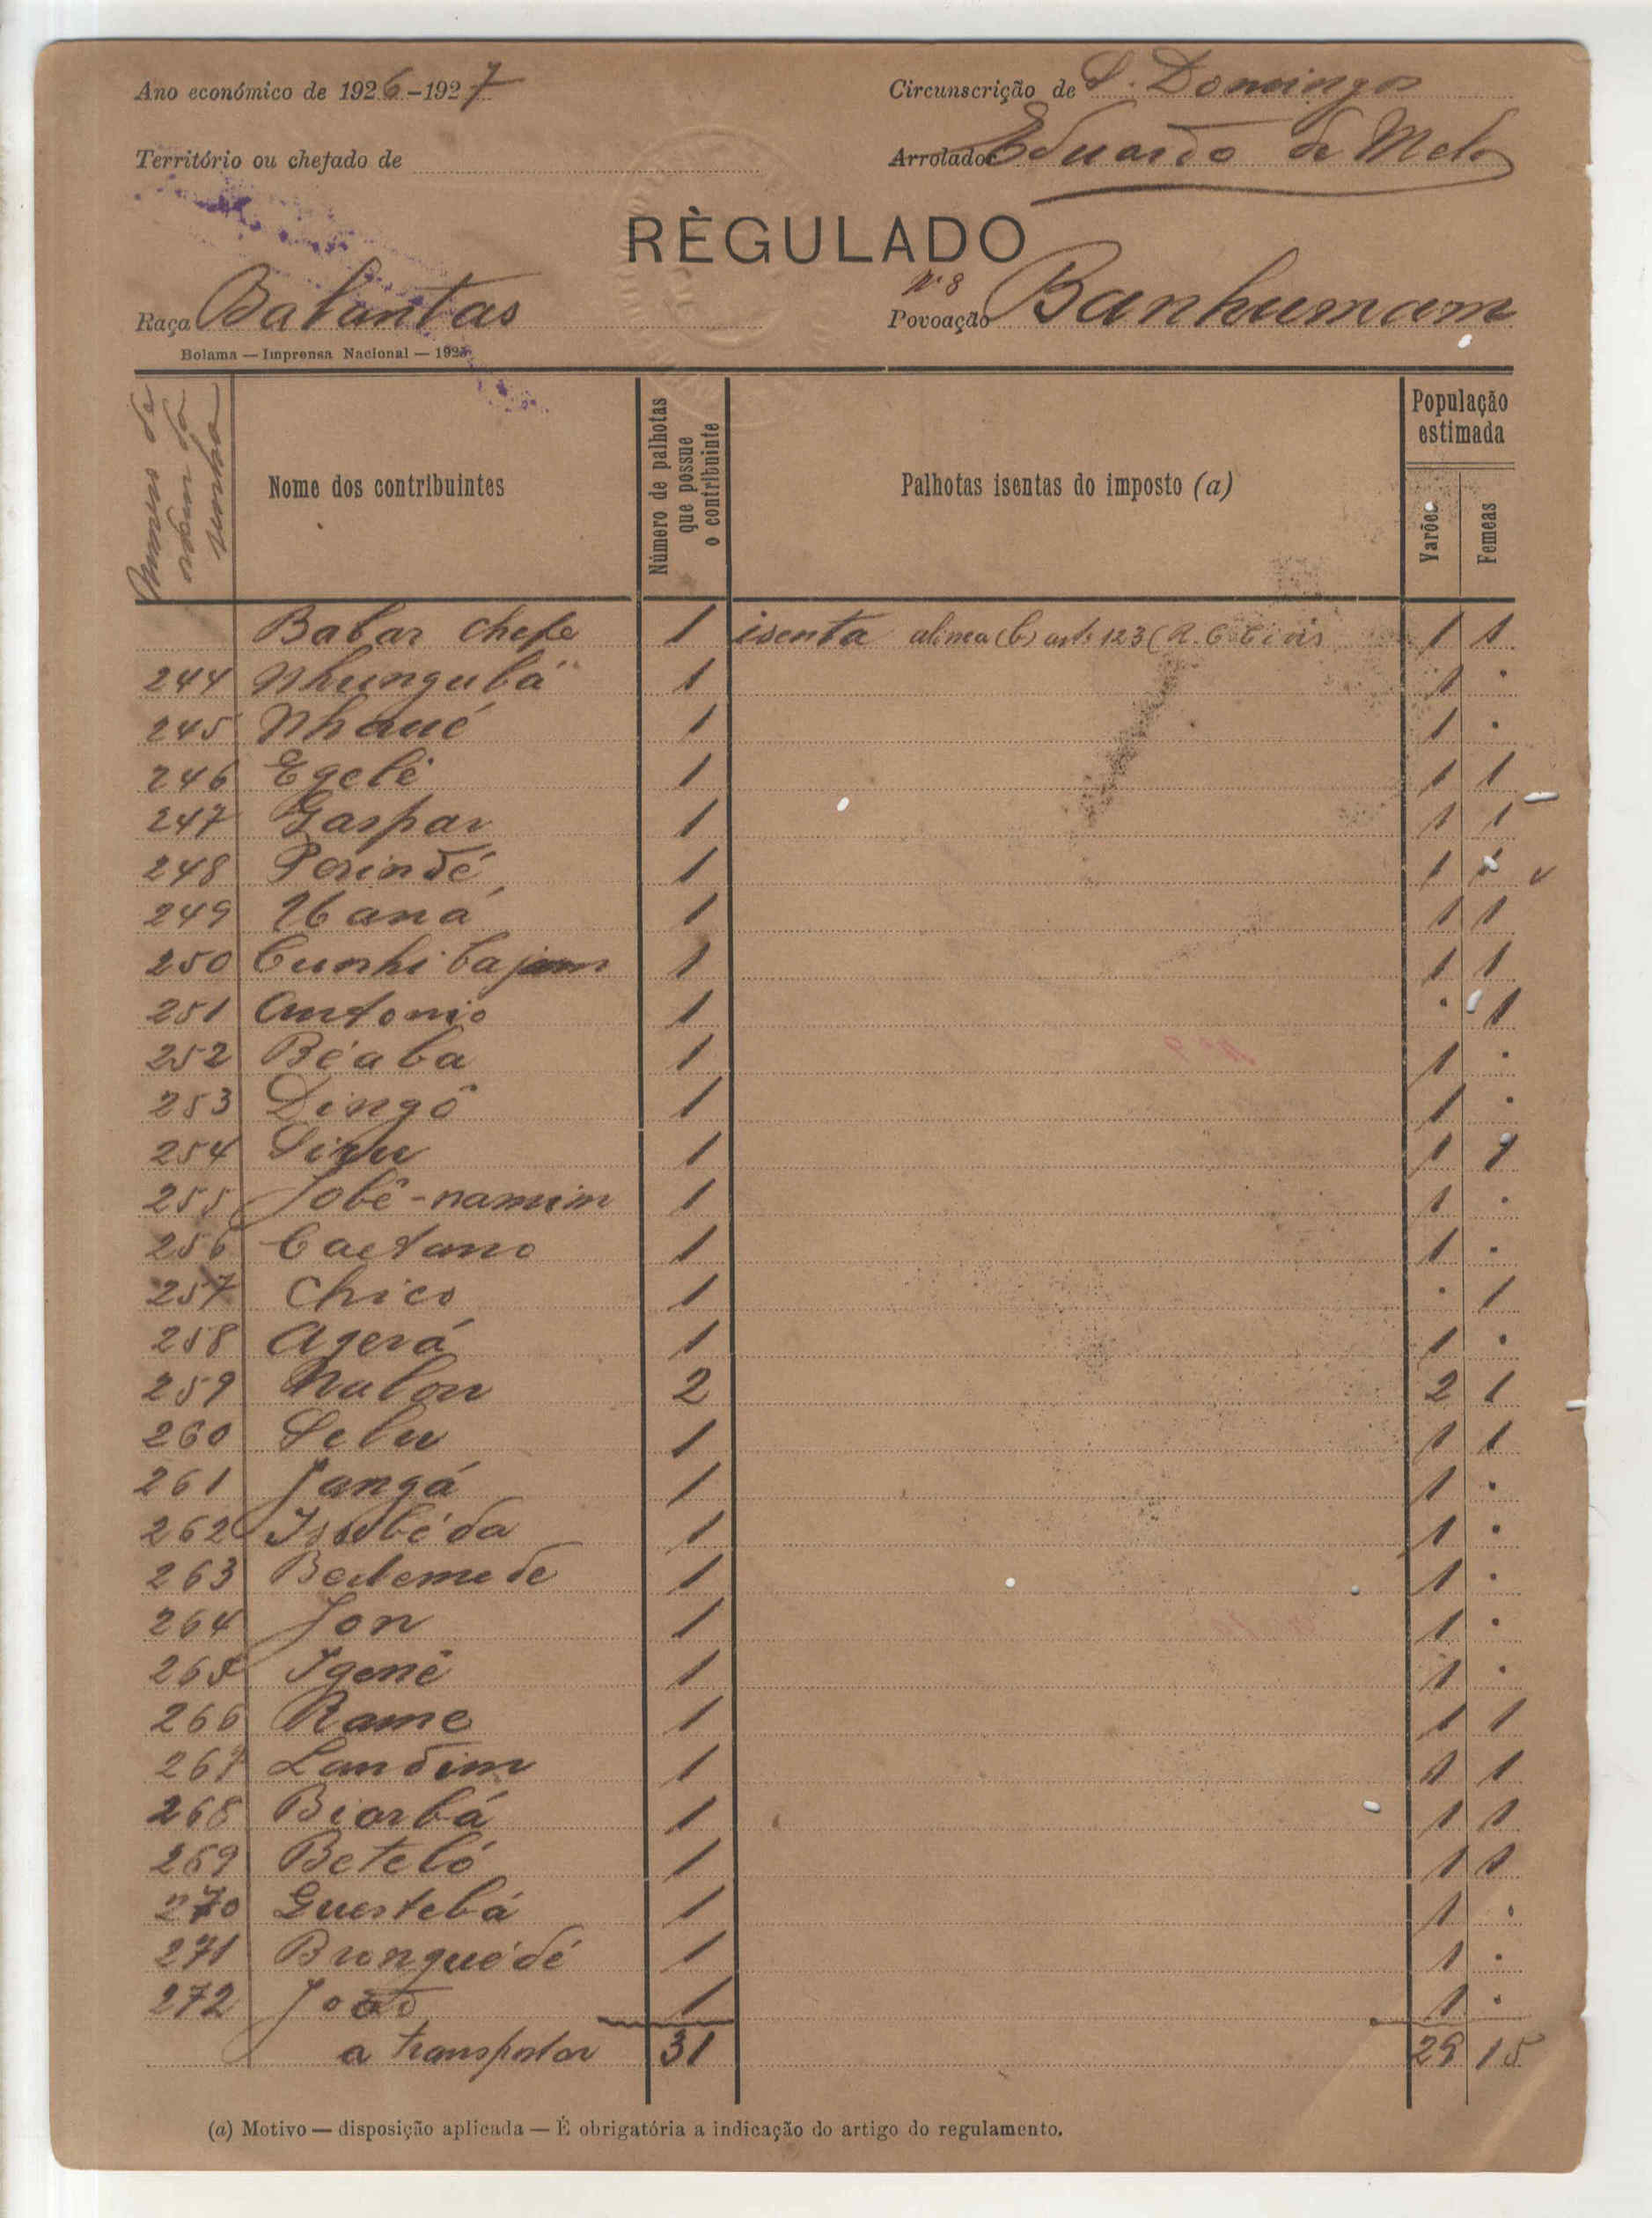 Ano económico de 1926-1927
Circunscrição de S. Domingos
Território ou chefado de
Arrolador Eduardo de Melo
RÈGULADO
Raça Balantas
Nº 8
Povoação Banhumam
Bolama — Imprensa Nacional — 1925
Numero de
Nome dos contribuintes
Número de palhotas que possue o contribuinte
Palhotas isentas do imposto (a)
População estimada
Varões
Femeas
Babar chefe 1 isenta alinea (b) artº 123 (R. C. Civis 1 1
244 Nhungubá 1 1 .
245 Nhaué 1 1 .
246 Egelê 1 1 1
247 Gaspar 1 1 1
248 Perindé 1 1 1
249 Ubaná 1 1 1
250 Cunhi bajam 1 1 1
251 Antonio 1 . 1
252 Béaba 1 1 .
253 Dingô 1 1 .
254 1 1 1
255 Jobê-namim 1 1 .
256 Caetano 1 1 .
257 Chico 1 . 1
258 Agerá 1 1 .
259 Nalon 2 2 1
260 Selu 1 1 1
261 Jangá 1 1 .
262 Isubéda 1 1 .
263 1 1 .
264 Jon 1 1 .
265 Igenê 1 1 .
266 Rame 1 1 1
267 Landim 1 1 1
268 Biorbá 1 1 1
269 Beteló 1 1 1
270 Guestebá 1 1 .
271 Bronguédé 1 1 .
272 João 1 1 .
a transportar 31 29 15
(a) Motivo — disposição aplicada — É obrigatória a indicação do artigo do regulamento.